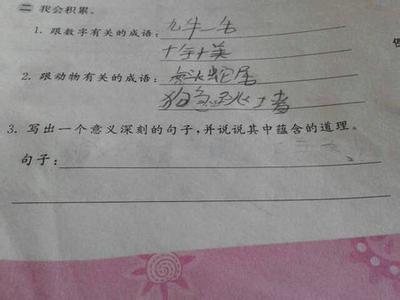 二 我会积累。
1. 跟数字有关的成语：九牛一毛
十全十美
2. 跟动物有关的成语：虎头蛇尾
狗急
3. 写出一个意义深刻的句子，并说说其中蕴含的道理。
句子：